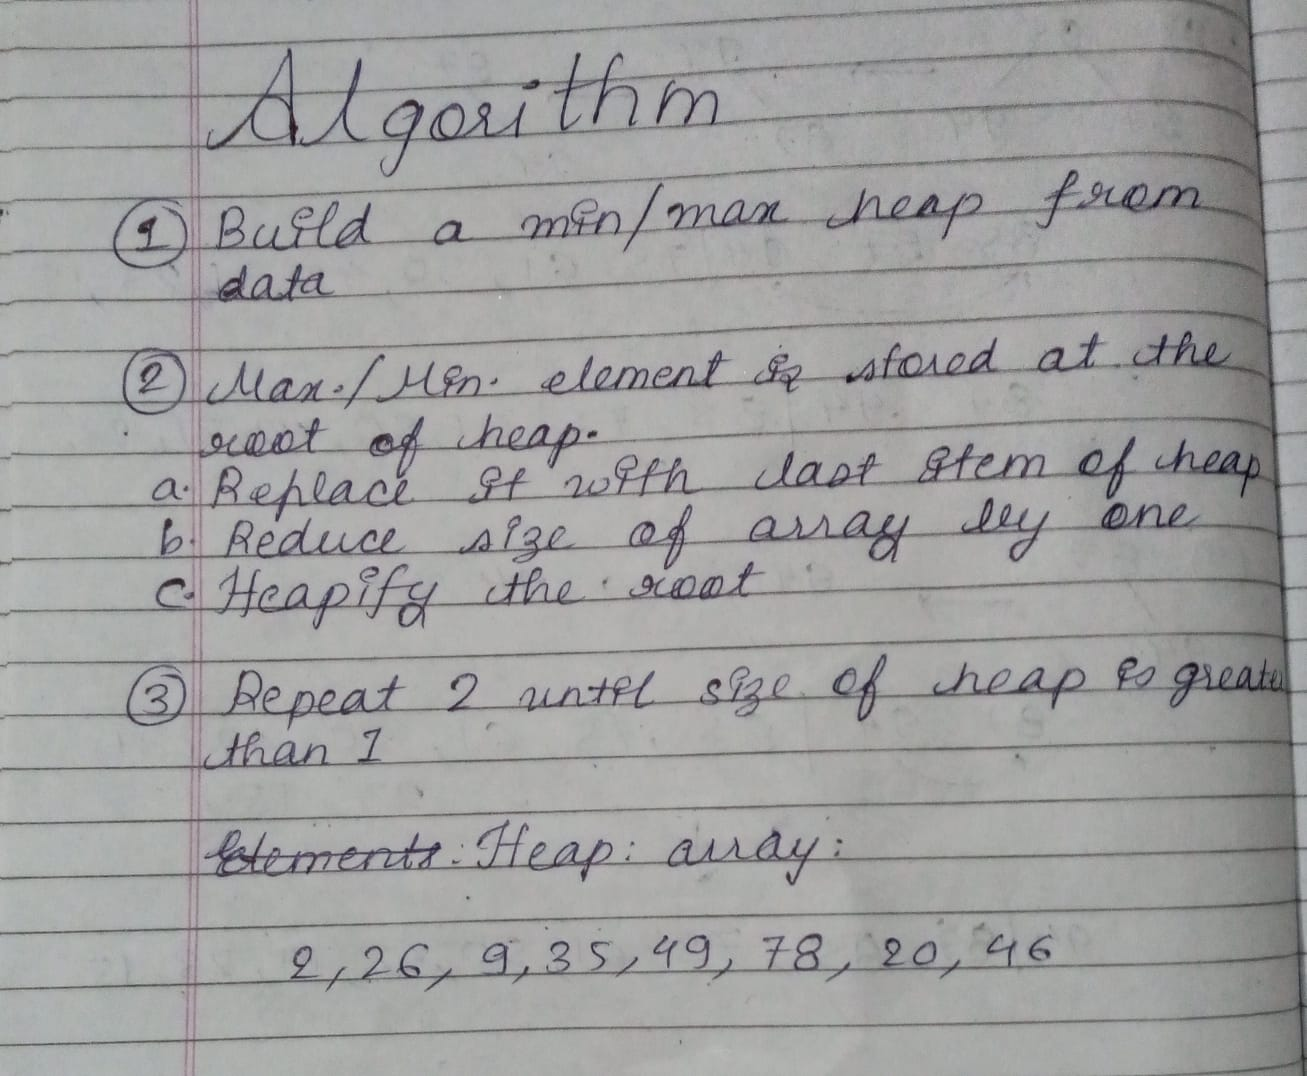 Algorithm
① Build a min/max heap from
data
② Max./Min. element is stored at the
root of heap.
a. Replace it with last item of heap
b. Reduce size of array by one
c. Heapify the root
③ Repeat 2 until size of heap is greater
than 1
Elements: Heap: array:
2, 26, 9, 35, 49, 78, 20, 46